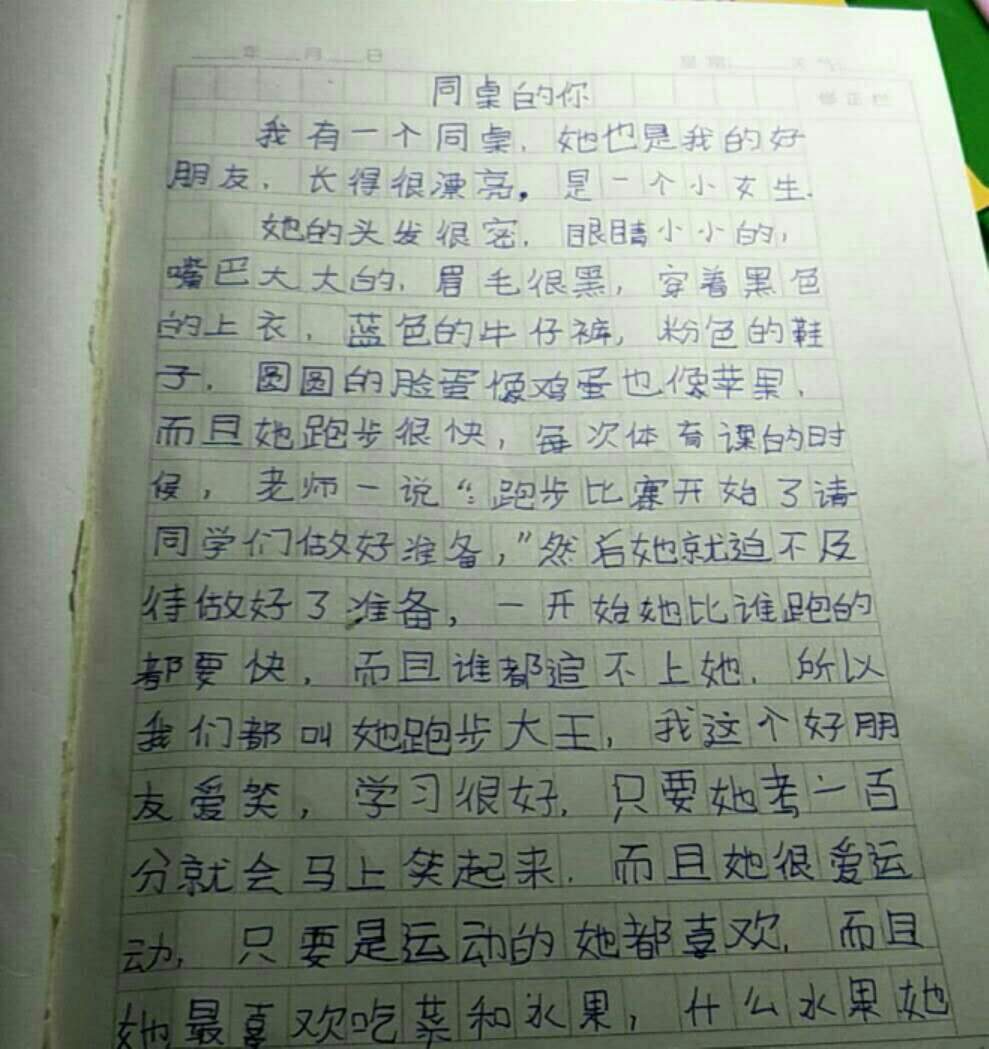 年 月 日
同桌的你
我有一个同桌,她也是我的好
朋友,长得很漂亮,是一个小女生.
她的头发很密,眼睛小小的,
嘴巴大大的,眉毛很黑,穿着黑色
的上衣,蓝色的牛仔裤,粉色的鞋
子,圆圆的脸蛋像鸡蛋也像苹果,
而且她跑步很快,每次体育课的时
候,老师一说“:跑步比赛开始了请
同学们做好准备,”然后她就迫不及
待做好了准备,一开始她比谁跑的
都要快,而且谁都追不上她,所以
我们都叫她跑步大王,我这个好朋
友爱笑,学习很好,只要她考一百
分就会马上笑起来.而且她很爱运
动,只要是运动的她都喜欢,而且
她最喜欢吃菜和水果,什么水果她